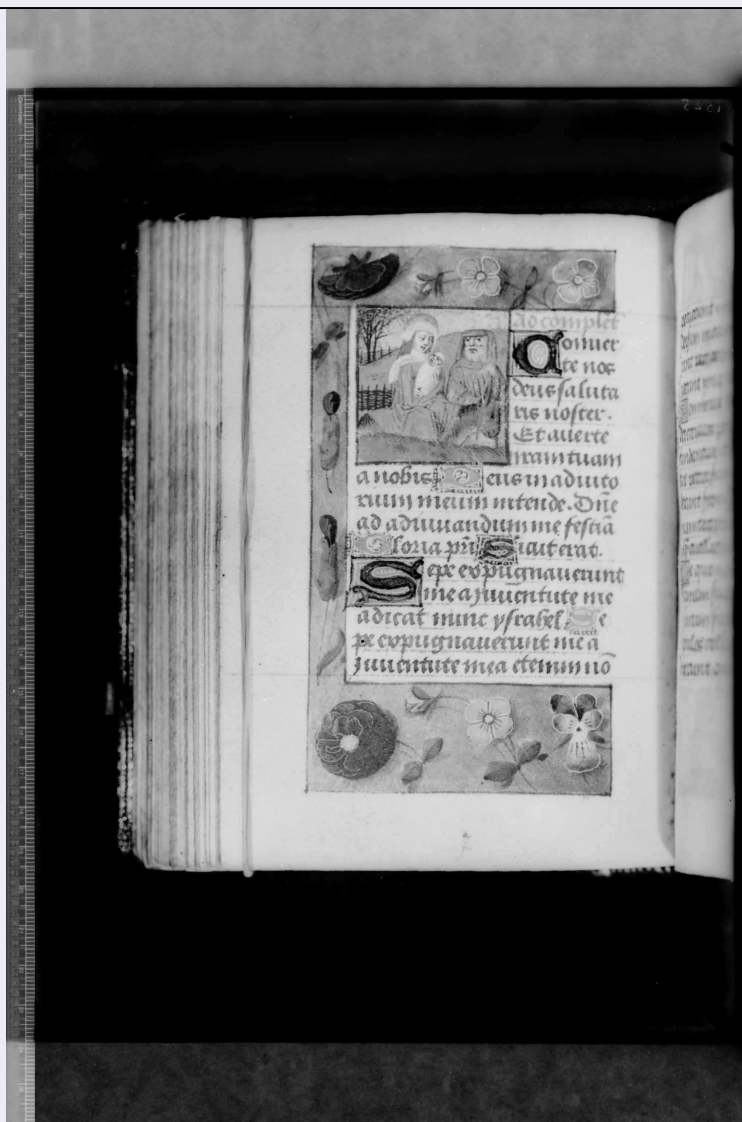 Ad complet
Conuer
te nos
deus saluta
ris noster.
Et auerte
iram tuam
a nobis Deus in adiuto
rium meum intende. Dñe
ad adiuuandum me festiā
Gloria pr̄i Sicut erat.
Sepe expugnauerunt
me a iuuentute mea
dicat nunc ysrahel Se
pe expugnauerunt me a
iuuentute mea etenim nō